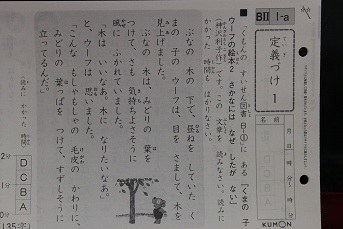 BⅡ 1-a
ていぎ
定義づけ 1
名前
月 日
時 分
時 分
『くもんの すいせん図書 BⅠ①』に ある 「くまの子
ウーフの絵本2 さかなには なぜ したが ない」
(神沢利子作)です。この 文章を 読みなさい。読みに
かかった 時間も はかりなさい。
ぶなの 木の 下で、昼ねを していた く
まの 子の ウーフは、目を さまして、木を
見上げました。
ぶなの 木は、みどりの 葉を
つけて、さも 気持ちよさそうに
風に ふかれていました。
「木は いいなあ。木に なりたいなあ。」
と、ウーフは 思いました。
「こんな もしゃもしゃの 毛皮の かわりに、
みどりの 葉っぱを つけて、すずしそうに
立ってるんだ。」
読みに かかった 時間
D
C
B
A
2分
1分
0分
KUMON